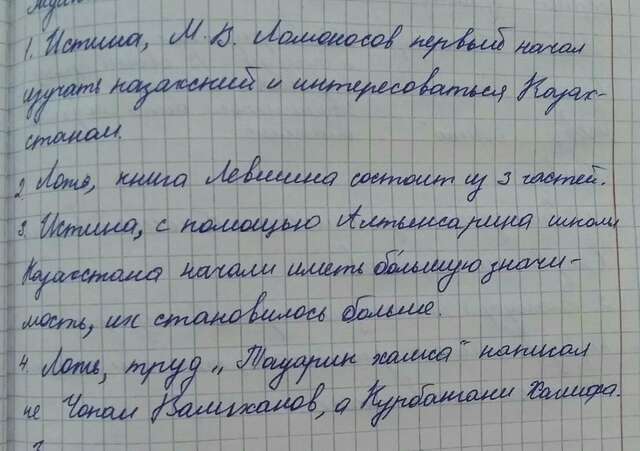 1. Истина, М. В. Ломоносов первый начал
изучать казахский и интересоваться Казах-
станом.
2. Ложь, книга Левшина состоит из 3 частей.
3. Истина, с помощью Алтынсарина школы
Казахстана начали иметь большую значи-
мость, их становилось больше.
4. Ложь, труд „Тауарих хамса" написал
не Чокан Валиханов, а Курбангали Халифа.